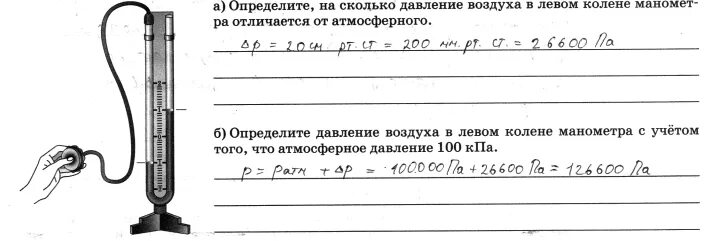 а) Определите, на сколько давление воздуха в левом колене маномет-
ра отличается от атмосферного.
Δp = 20 см. рт. ст = 200 мм. рт. ст. = 26600 Па
б) Определите давление воздуха в левом колене манометра с учётом
того, что атмосферное давление 100 кПа.
p = pатм + Δp = 100.000 Па + 26600 Па = 126600 Па